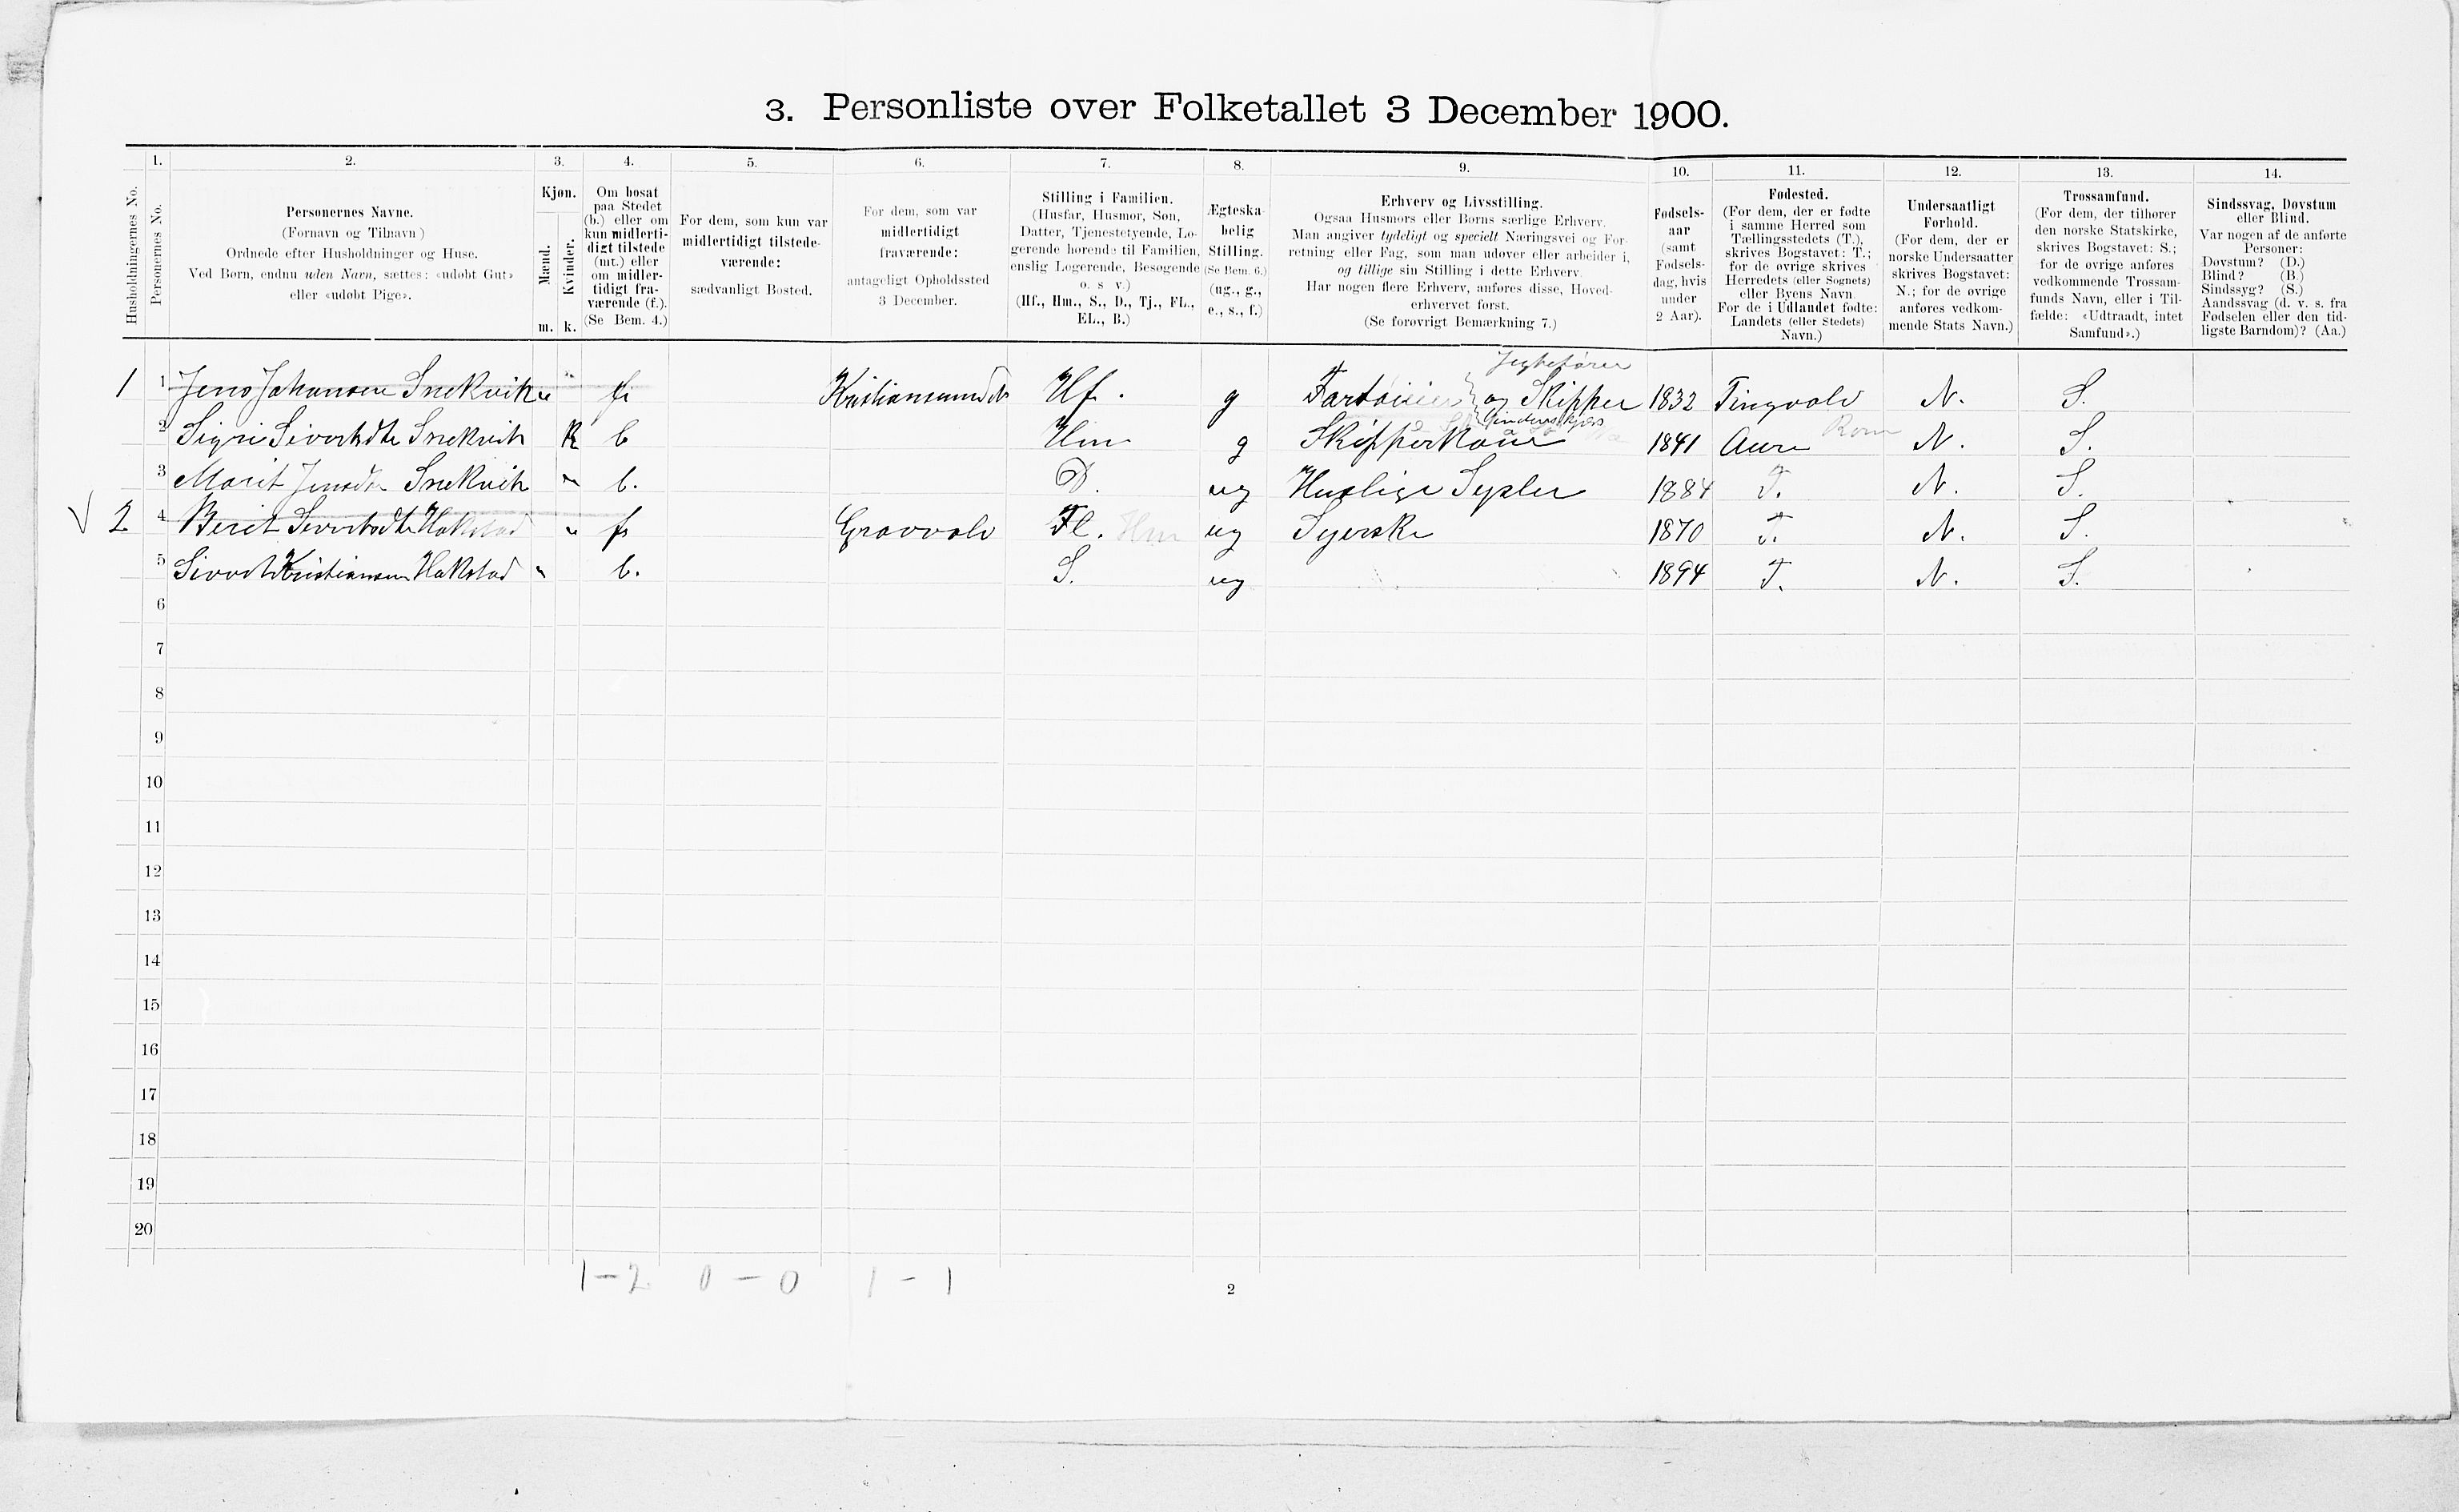 3. Personliste over Folketallet 3 December 1900.
Husholdningernes No.
1. Personernes No.
2. Personernes Navne.
(Fornavn og Tilnavn)
Ordnede efter Husholdninger og Huse.
Ved Børn, endnu uden Navn, sættes: «udøbt Gut»
eller «udøbt Pige».
3. Kjøn.
Mænd. m.
Kvinder. k.
4. Om bosat
paa Stedet
(b.) eller om
kun midlerti-
digt tilstede
(mt.) eller
om midler-
tidigt fra-
værende (f.).
(Se Bem. 4.)
5. For dem, som kun var
midlertidigt tilstede-
værende:
sædvanligt Bosted.
6. For dem, som var
midlertidigt
fraværende:
antageligt Opholdssted
3 December.
7. Stilling i Familien.
(Husfar, Husmor, Søn,
Datter, Tjenestetyende, Lo-
gerende hørende til Familien,
enslig Logerende, Besøgende
o. s. v.)
(Hf., Hm., S., D., Tj., FL.,
EL., B.)
8. Ægteska-
belig
Stilling.
(Se Bem. 6.)
(ug., g.,
e., s., f.)
9. Erhverv og Livsstilling.
Ogsaa Husmors eller Børns særlige Erhverv.
Man angiver tydeligt og specielt Næringsvei og For-
retning eller Fag, som man udøver eller arbeider i,
og tillige sin Stilling i dette Erhverv.
Har nogen flere Erhverv, anføres disse, Hoved-
erhvervet først.
(Se forøvrigt Bemærkning 7.)
10. Fødsels-
aar
(samt
Fødsels-
dag, hvis
under
2 Aar).
11. Fødested.
(For dem, der er fødte
i samme Herred som
Tællingsstedets (T.),
skrives Bogstavet: T.;
for de øvrige skrives
Herredets (eller Sognets)
eller Byens Navn.
For de i Udlandet fødte:
Landets (eller Stedets)
Navn.)
12. Undersaatligt
Forhold.
(For dem, der er
norske Undersaatter
skrives Bogstavet:
N.; for de øvrige
anføres vedkom-
mende Stats Navn.)
13. Trossamfund.
(For dem, der tilhører
den norske Statskirke,
skrives Bogstavet: S.;
for de øvrige anføres
vedkommende Trossam-
funds Navn, eller i Til-
fælde: «Udtraadt, intet
Samfund».)
14. Sindssvag, Døvstum
eller Blind.
Var nogen af de anførte
Personer:
Døvstum? (D.)
Blind? (B.)
Sindssyg? (S.)
Aandssvag (d. v. s. fra
Fødselen eller den tid-
ligste Barndom)? (Aa.)
Jegtefører
1 1 Jens Johansen Snekvik " f. Kristianssund Hf. g og Skipper 1832 Tingvold N. S.
2 Sigri Sivertsdtr Snekvik K b Hm g Skipperkone 1841 Aure N. S.
3 Marit Jensdtr Snekvik " b. D. ug Huslige Sysler 1884 T. N. S.
√ 2 4 Berit Sivertsdtr Hakstad " f Gravvold Fl. Hm ug Syerske 1870 T. N. S.
5 Sivert Kristiansen Hakstad " b. S. ug 1894 T. N. S.
6
7
8
9
10
11
12
13
14
15
16
17
18
19
20
1 – 2 0 – 0 1 – 1
2